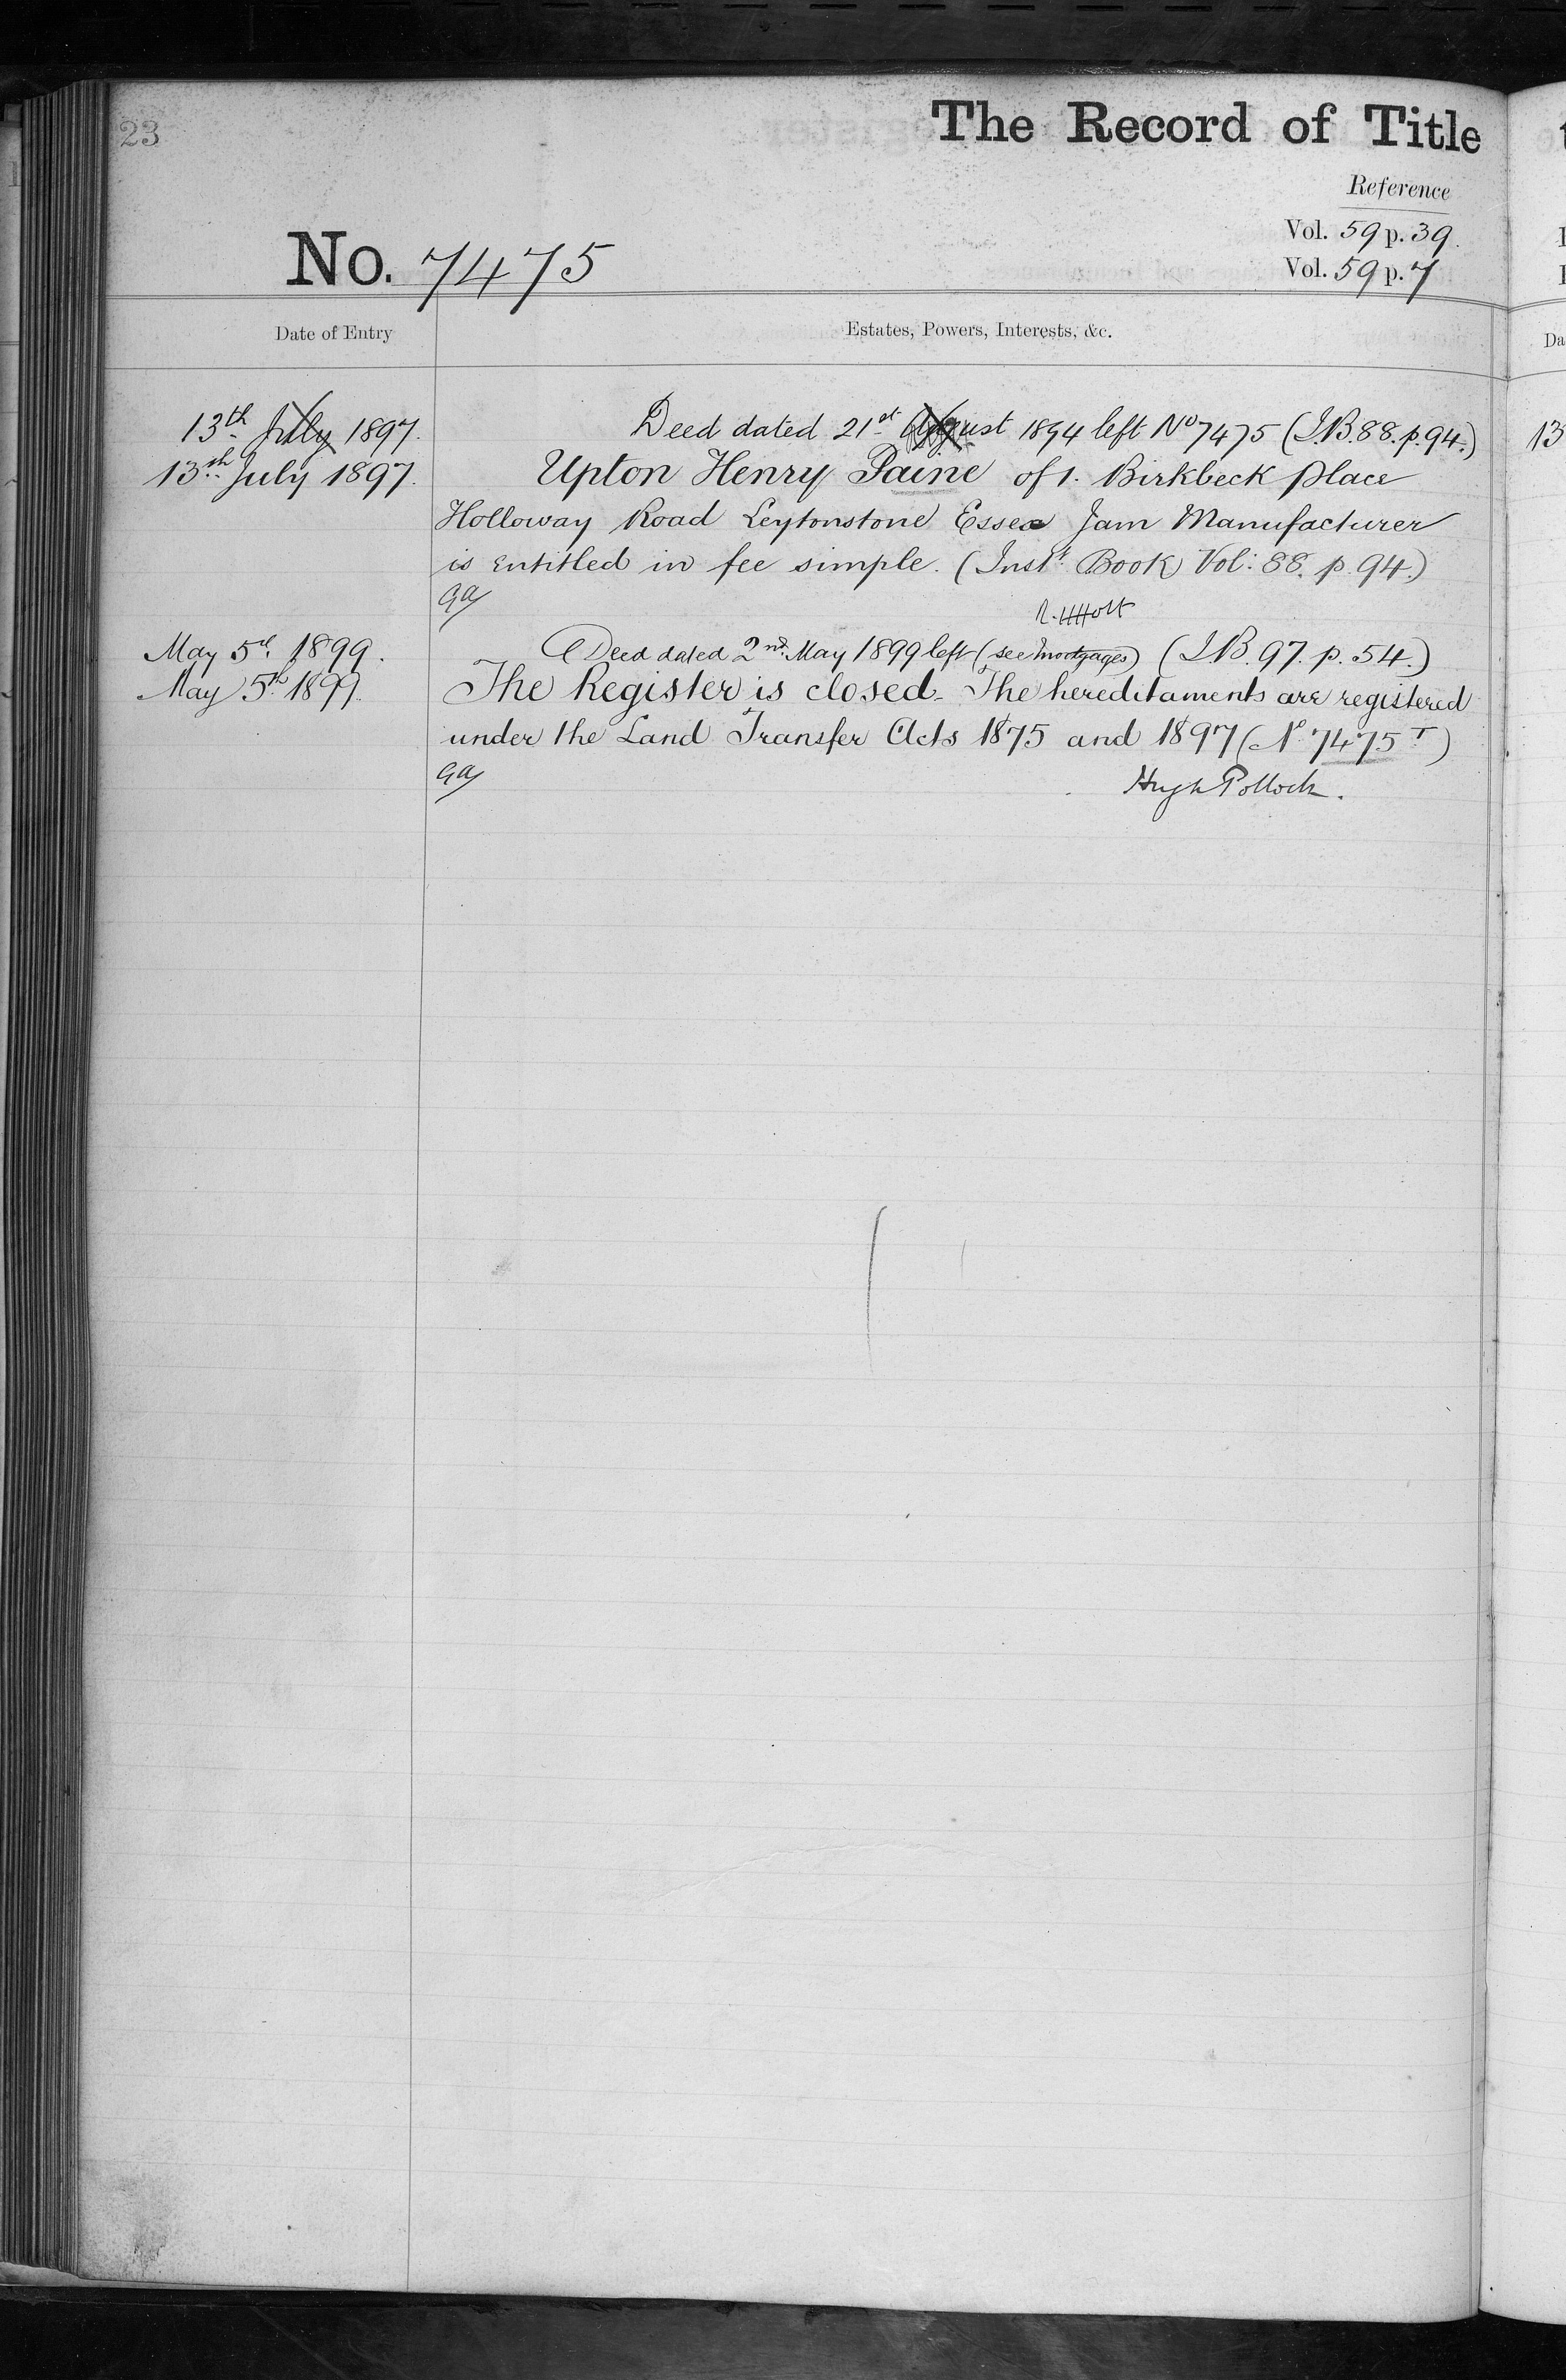 23
The Record of Title
Reference
Vol. 59 p. 39.
No. 7475
Vol. 59 p. 7
Date of Entry
Estates, Powers, Interests, &c.
Da
13th July 1897. Deed dated 21st August 1894 left No 7475 (I.B. 88. p. 94.)
13
13th July 1897. Upton Henry Paine of 1. Birkbeck place
Holloway Road Leytonstone Essex Jam Manufacturer
is entitled in fee simple. (Instt Book Vol: 88. p. 94.)
May 5th 1899. Deed dated 2nd May 1899 left (see Mortgages) (I.B. 97. p. 54.)
May 5th 1899. The Register is closed. The hereditaments are registered
under the Land Transfer Acts 1875 and 1897 (No 7475 T)
Hugh Pollock.